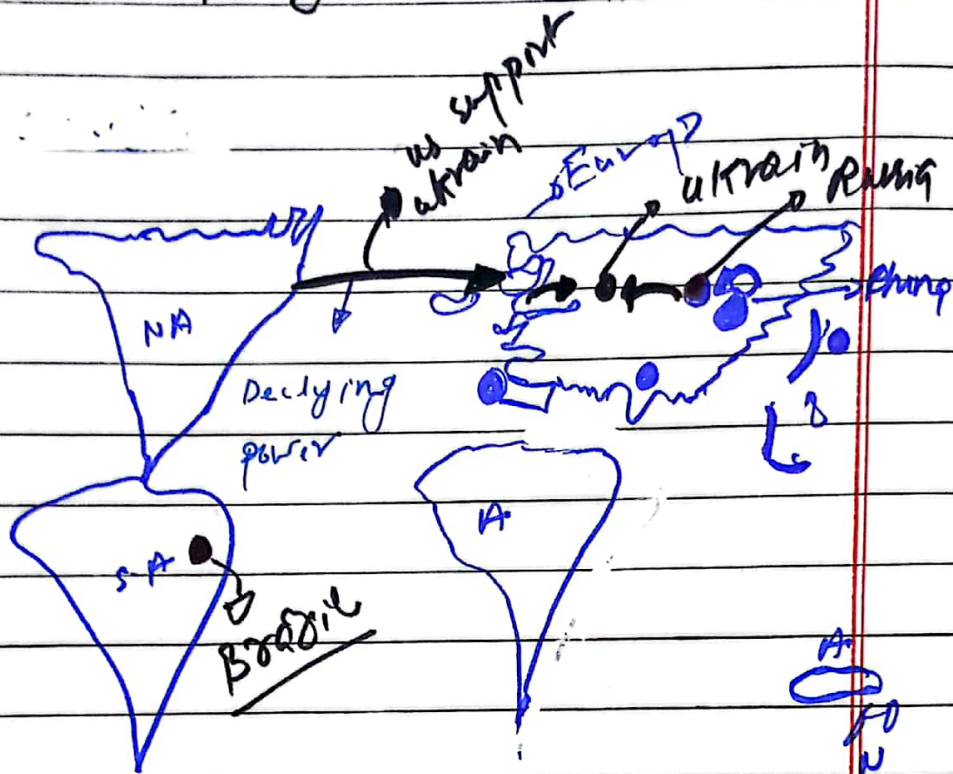 us support
ukrain
Europ
ukrain
Russia
China
NA
Declying
power
A.
S.A
Brazil
A.
N